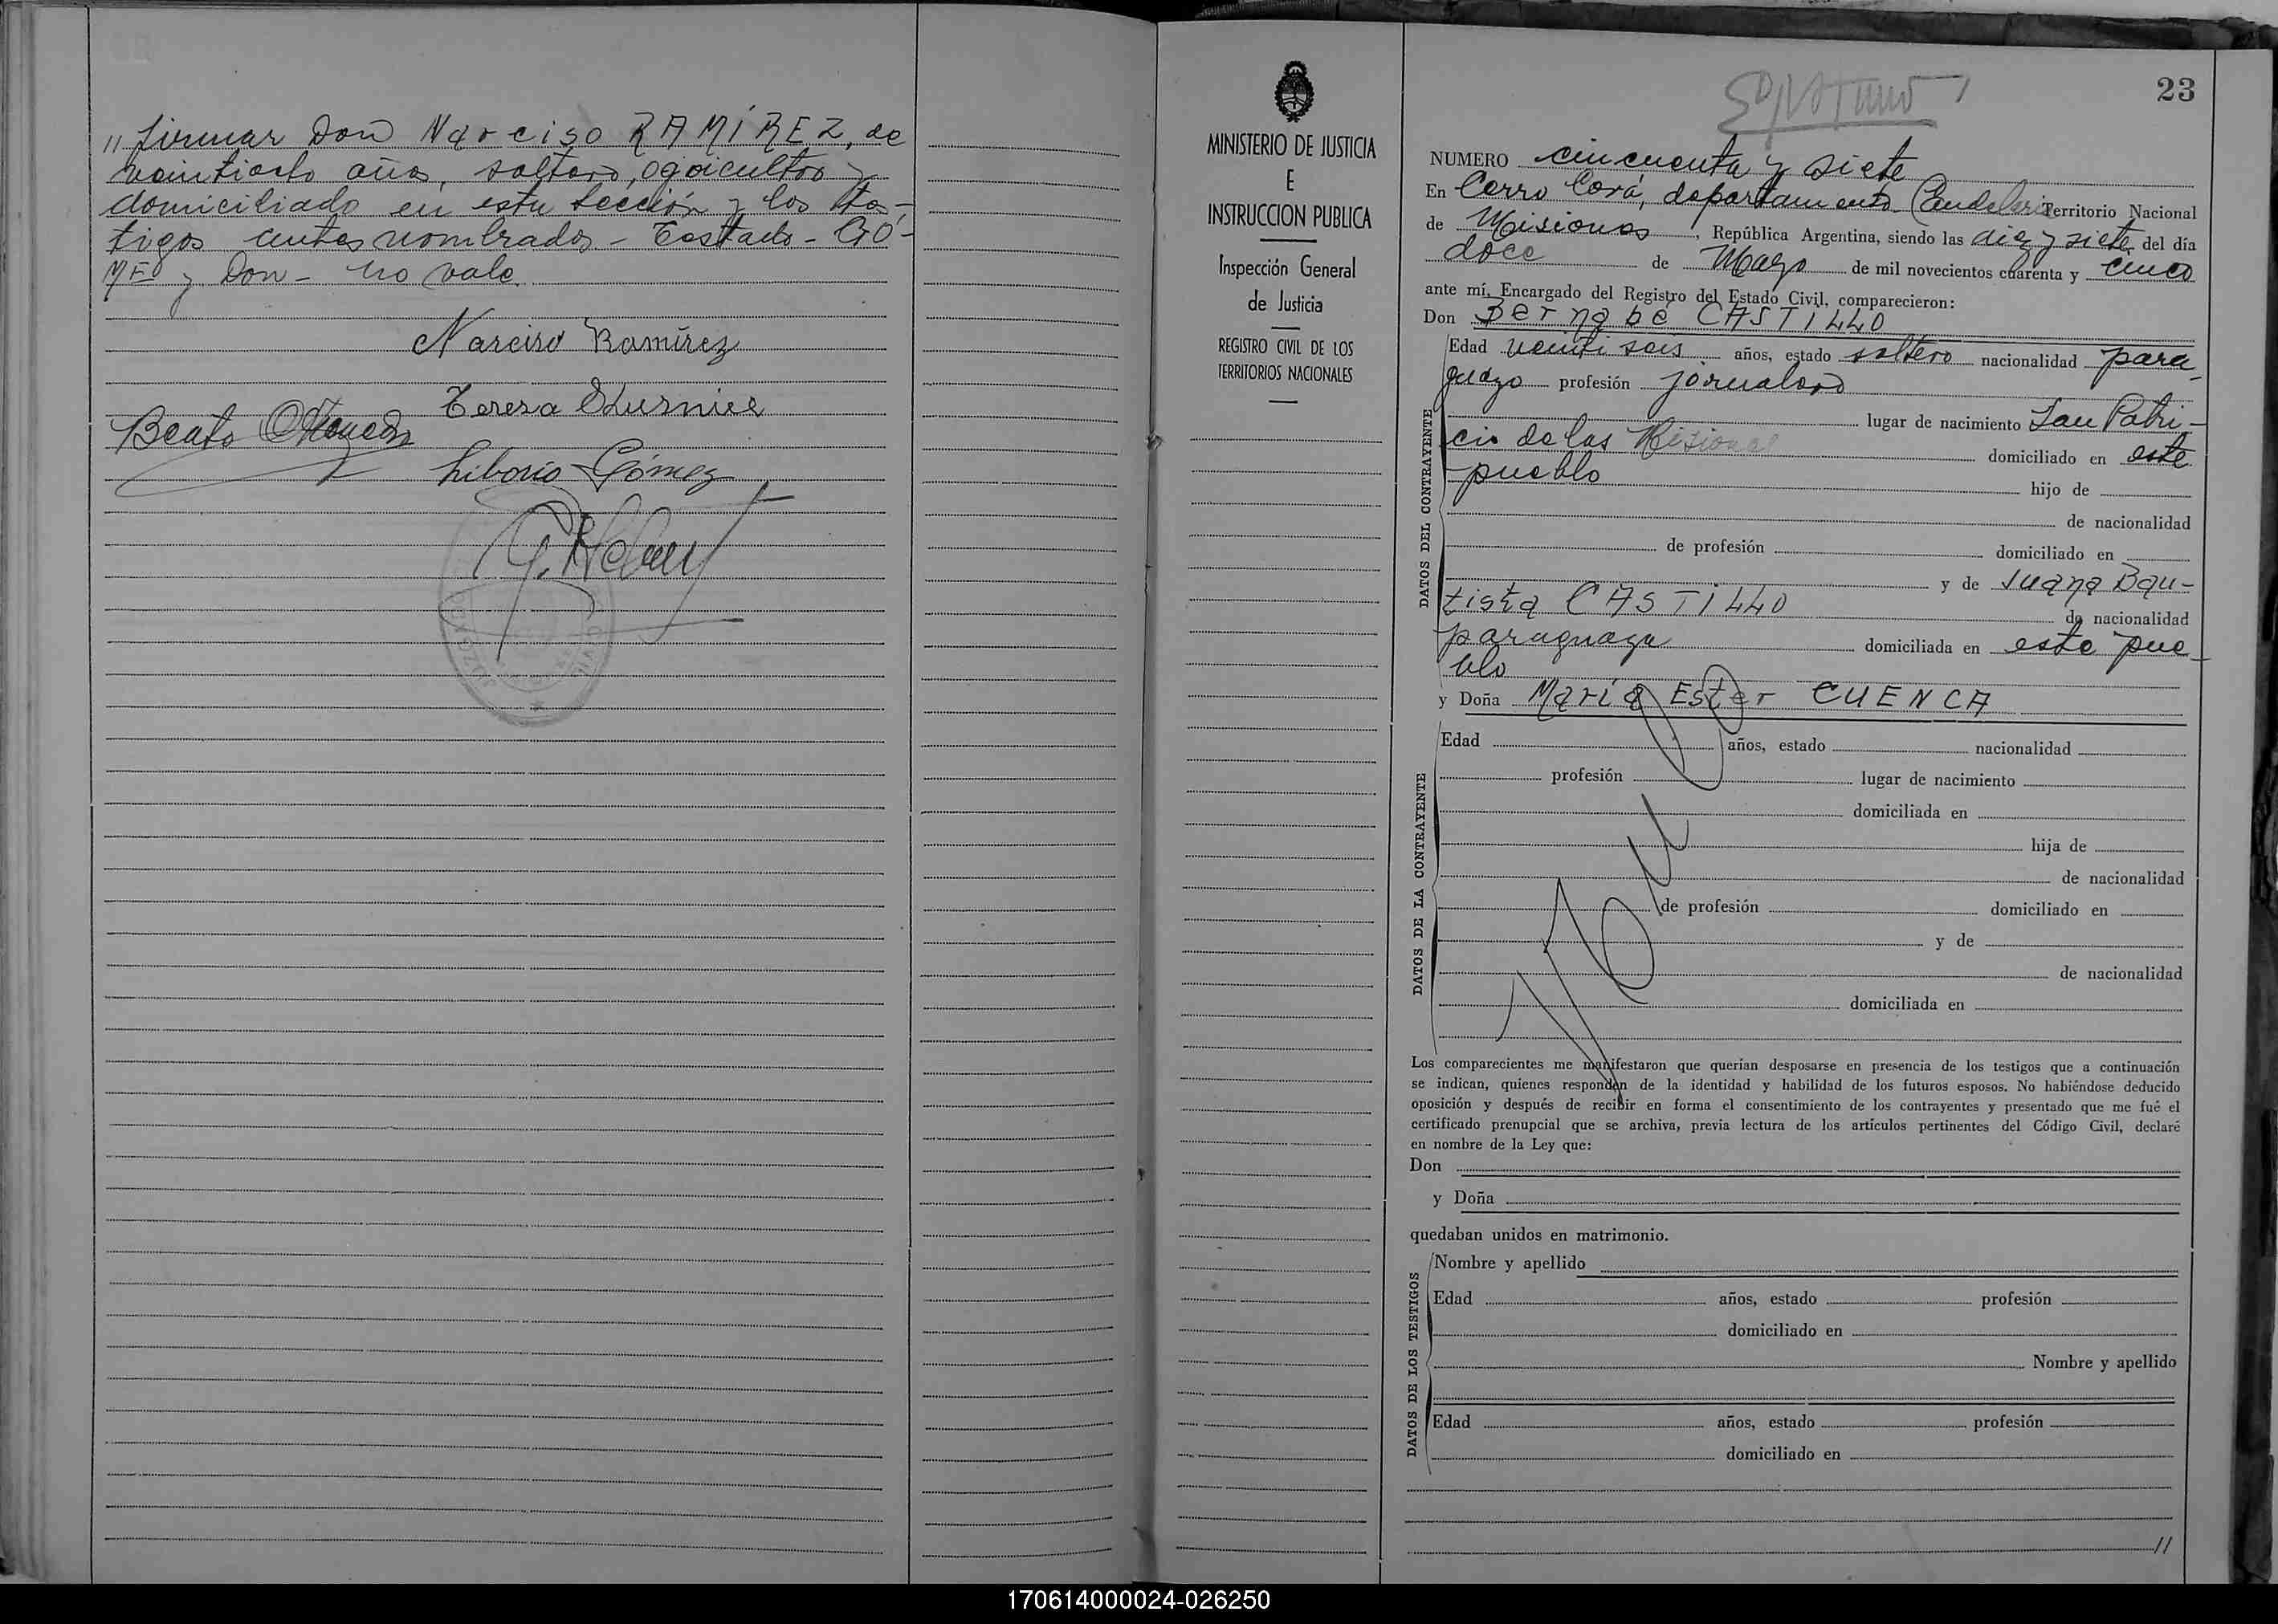 " firmar Don Narciso RAMÍREZ, de
veintiocho años, soltero, agricultor y
domiciliado en esta sección y los tes-
tigos antes nombrados - Testado - GÓ-
ME y Don - no vale.
Narciso Ramírez
Teresa
Beato
Liborio Gómez
23
MINISTERIO DE JUSTICIA
E
INSTRUCCION PUBLICA
Inspección General
de Justicia
REGISTRO CIVIL DE LOS
TERRITORIOS NACIONALES
NUMERO cincuenta y siete
En Cerro Corá, departamento Candelaria Territorio Nacional
de Misiones, República Argentina, siendo las diez y siete del día
doce de Mayo de mil novecientos cuarenta y cinco
ante mí, Encargado del Registro del Estado Civil, comparecieron:
Don Bernabé CASTILLO
DATOS DEL CONTRAYENTE
Edad veinti seis años, estado soltero nacionalidad para-
guayo profesión jornalero
lugar de nacimiento San Patri-
cio de las Misiones domiciliado en este
pueblo hijo de
de nacionalidad
de profesión domiciliado en
y de Juana Bau-
tista CASTILLO de nacionalidad
paraguaya domiciliada en este pue-
blo
y Doña María Ester CUENCA
DATOS DE LA CONTRAYENTE
Edad años, estado nacionalidad
profesión lugar de nacimiento
domiciliada en
hija de
de nacionalidad
de profesión domiciliado en
y de
de nacionalidad
domiciliada en
Los comparecientes me manifestaron que querían desposarse en presencia de los testigos que a continuación
se indican, quienes responden de la identidad y habilidad de los futuros esposos. No habiéndose deducido
oposición y después de recibir en forma el consentimiento de los contrayentes y presentado que me fué el
certificado prenupcial que se archiva, previa lectura de los artículos pertinentes del Código Civil, declaré
en nombre de la Ley que:
Don
y Doña
quedaban unidos en matrimonio.
DATOS DE LOS TESTIGOS
Nombre y apellido
Edad años, estado profesión
domiciliado en
Nombre y apellido
Edad años, estado profesión
domiciliado en
//
170614000024-026250